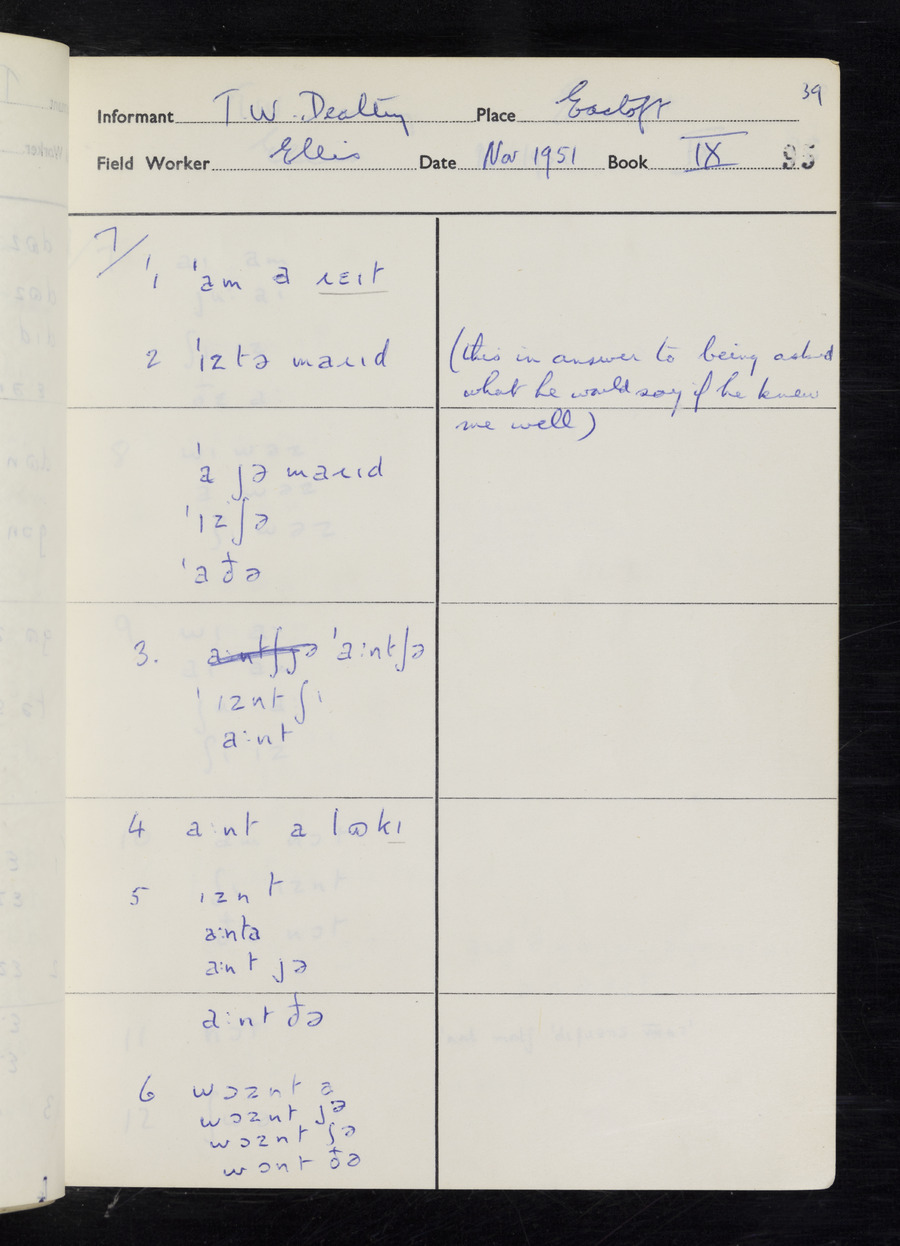 39
Informant T W. Dealtry Place Eastoft
Field Worker Ellis Date Nov 1951 Book IX 95
7/
1 ˈam a ɹɛɪt
2 ˈɪztə maɹɪd
(this in answer to being asked
what he would say if he knew
me well)
ˈa jə maɹɪd
ˈɪzʃə
ˈa ðə
3. ˈa:ntʃə
ˈɪzntʃɪ
a:nt
4 a:nt a lɷkɪ
5 ɪznt
a:nta
a:nt jə
a:nt ðə
6 wɔznt a
wɔznt jə
wɔznt ʃə
wɔnt ðə